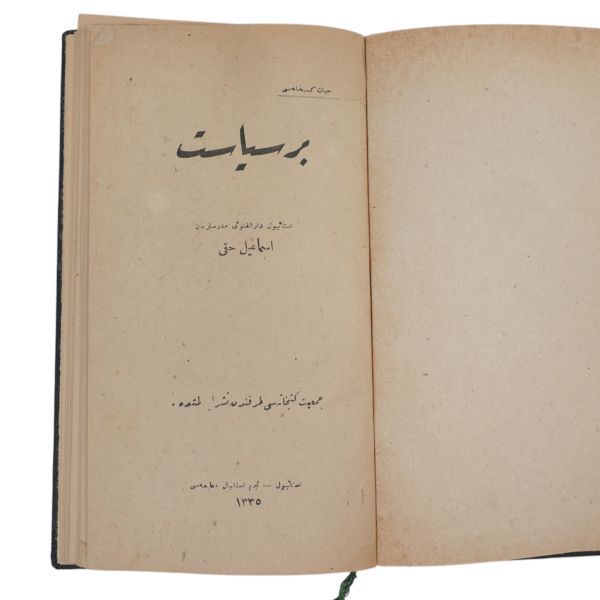 حیات کتبخانه‌سی
بر سیاست
استانبول دارالفنونی مدرسلرندن
اسماعیل حقی
جمعیت کتبخانه‌سی طرفندن نشر
استانبول — نجم استقبال مطبعه‌سی
١٣٣٥